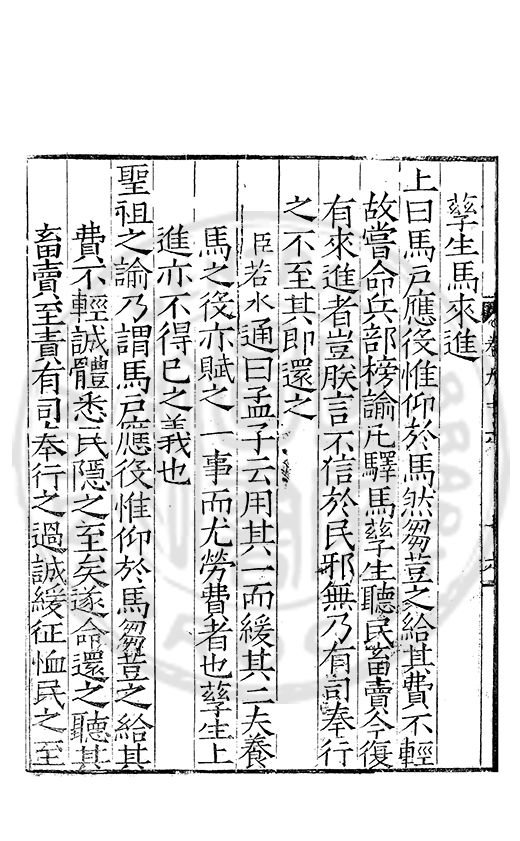 孳生馬來進
上曰馬戶應役惟仰於馬然芻荳之給其費不輕
故嘗命兵部榜諭凡驛馬孳生聽民畜賣今復
有來進者豈朕言不信於民邪無乃有司奉行
之不至其即還之
臣若水通曰孟子云用其一而緩其二夫養
馬之役亦賦之一事而尤勞費者也孳生上
進亦不得已之義也
聖祖之諭乃謂馬戶應役惟仰於馬芻荳之給其
費不輕誠體悉民隱之至矣遂命還之聽其
畜賣至責有司奉行之過誠緩征恤民之至